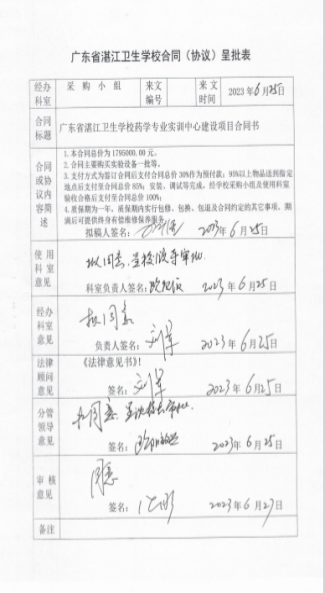 广东省湛江卫生学校合同（协议）呈批表
经办科室 采购小组 来文编号 来文时间 2023年6月25日
合同标题 广东省湛江卫生学校药学专业实训中心建设项目合同书
合同或协议内容简述
1.本合同总价为1795000.00元。
2.合同主要购买实验设备一批等。
3.支付方式为签订合同后支付合同总价30%作为预付款；95%以上物品送到指定
地点后支付至合同总价85%；安装、调试等完成，经学校采购小组及使用科室
验收合格后支付至合同总价100%；
4.质保期为一年，质保期内实行包修、包换、包退及合同约定的其它事项，期
满后可提供终身有偿维修保养服务。
拟稿人签名： 2023年6月25日
使用科室意见 拟同意，呈校领导审批。
科室负责人签名： 2023年6月25日
经办科室意见 拟同意
负责人签名： 2023年6月25日
法律顾问意见 《法律意见书》！
签名： 2023年6月25日
分管领导意见 同意，呈
签名： 2023年6月25日
审核意见 同意
签名： 2023年6月27日
备注